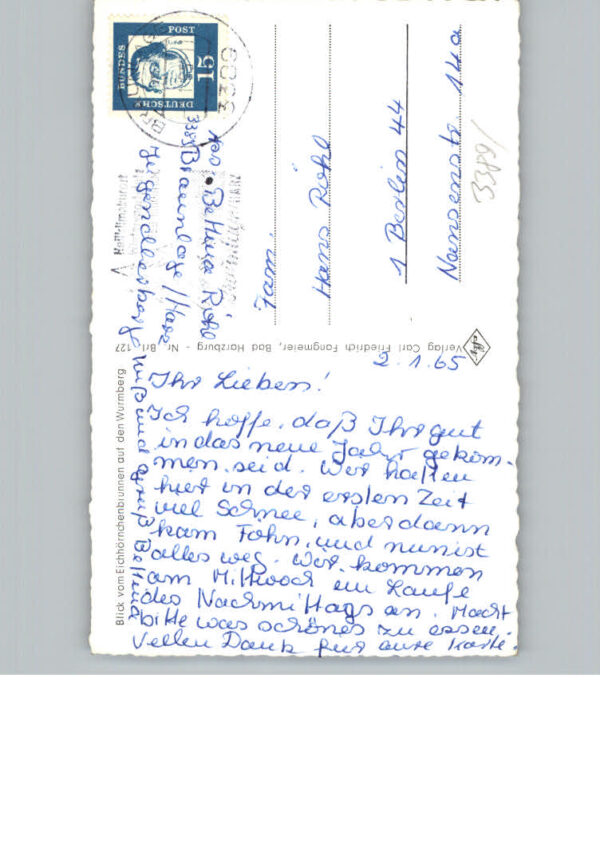 2.1.65
Ihr Lieben!
Ich hoffe, daß Ihr gut
in das neue Jahr gekom-
men, seid. Wir hatten
hier in der ersten Zeit
viel Schnee, aber dann
kam Föhn, und nun ist
alles weg. Wir kommen
am Mittwoch im Laufe
des Nachmittags an. Macht
bitte was schönes zu essen.
Vielen Dank für eure Karte.
und Gruß Bettina
Abs. Bettina Röhl
Braunlage/Harz
Fam.
Hans Röhl
1 Berlin 44
Nansenstr 14a
3389/
DEUTSCHE
BUNDES
POST
15
Heilklimakurort
Blick vom Eichhörnchenbrunnen auf den Wurmberg
Verlag Carl Friedrich Fangmeier, Bad Harzburg - Nr. Brl. 127